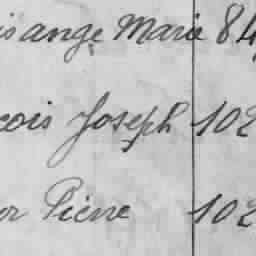 isange Marie 84
cois Joseph 102
or Pierre 102